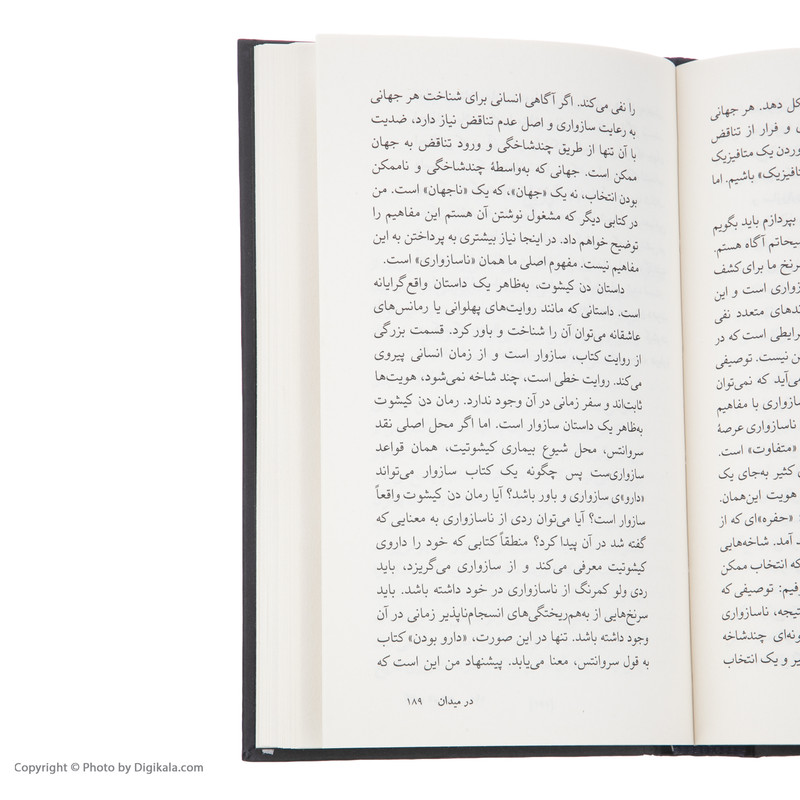 را نفی می‌کند. اگر آگاهی انسانی برای شناخت هر جهانی
به رعایت سازواری و اصل عدم تناقض نیاز دارد، ضدیت
با آن تنها از طریق چندشاخگی و ورود تناقض به جهان
ممکن است. جهانی که به‌واسطهٔ چندشاخگی و ناممکن
بودن انتخاب، نه یک «جهان»، که یک «ناجهان» است. من
در کتابی دیگر که مشغول نوشتن آن هستم این مفاهیم را
توضیح خواهم داد. در اینجا نیاز بیشتری به پرداختن به این
مفاهیم نیست. مفهوم اصلی ما همان «ناسازواری» است.
داستان دن کیشوت، به‌ظاهر یک داستان واقع‌گرایانه
است. داستانی که مانند روایت‌های پهلوانی یا رمانس‌های
عاشقانه می‌توان آن را شناخت و باور کرد. قسمت بزرگی
از روایت کتاب، سازوار است و از زمان انسانی پیروی
می‌کند. روایت خطی است، چند شاخه نمی‌شود، هویت‌ها
ثابت‌اند و سفر زمانی در آن وجود ندارد. رمان دن کیشوت
به‌ظاهر یک داستان سازوار است. اما اگر محل اصلی نقد
سروانتس، محل شیوع بیماری کیشوتیت، همان قواعد
سازواری‌ست پس چگونه یک کتاب سازوار می‌تواند
«دارو»ی سازواری و باور باشد؟ آیا رمان دن کیشوت واقعاً
سازوار است؟ آیا می‌توان ردی از ناسازواری به معنایی که
گفته شد در آن پیدا کرد؟ منطقاً کتابی که خود را داروی
کیشوتیت معرفی می‌کند و از سازواری می‌گریزد، باید
ردی ولو کمرنگ از ناسازواری در خود داشته باشد. باید
سرنخ‌هایی از به‌هم‌ریختگی‌های انسجام‌ناپذیر زمانی در آن
وجود داشته باشد. تنها در این صورت، «دارو بودن» کتاب
به قول سروانتس، معنا می‌یابد. پیشنهاد من این است که
در میدان ۱۸۹
کل دهد. هر جهانی
و فرار از تناقض
وردن یک متافیزیک
تافیزیک» باشیم. اما
بپردازم باید بگویم
سیحاتم آگاه هستم.
سرنخ ما برای کشف
زواری است و این
ندهای متعدد نفی
رایطی است که در
ن نیست. توصیفی
می‌آید که نمی‌توان
سازواری با مفاهیم
ناسازواری عرصهٔ
«متفاوت» است.
کثیر به‌جای یک
هویت این‌همان.
«حفره»ای که از
آمد. شاخه‌هایی
که انتخاب ممکن
رفیم: توصیفی که
تیجه، ناسازواری
ونه‌ای چندشاخه
یر و یک انتخاب
Copyright © Photo by Digikala.com